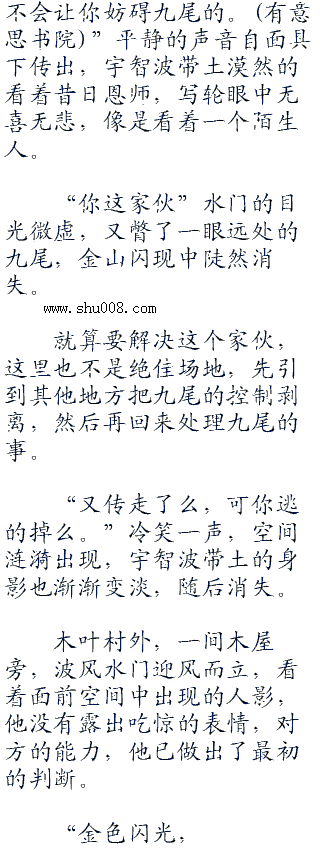 不会让你妨碍九尾的。(有意
思书院)”平静的声音自面具
下传出，宇智波带土漠然的
看着昔日恩师，写轮眼中无
喜无悲，像是看着一个陌生
人。
“你这家伙”水门的目
光微虚，又瞥了一眼远处的
九尾，金山闪现中陡然消
失。
www.shu008.com
就算要解决这个家伙，
这里也不是绝佳场地，先引
到其他地方把九尾的控制剥
离，然后再回来处理九尾的
事。
“又传走了么，可你逃
的掉么。”冷笑一声，空间
涟漪出现，宇智波带土的身
影也渐渐变淡，随后消失。
木叶村外，一间木屋
旁，波风水门迎风而立，看
着面前空间中出现的人影，
他没有露出吃惊的表情，对
方的能力，他已做出了最初
的判断。
“金色闪光，